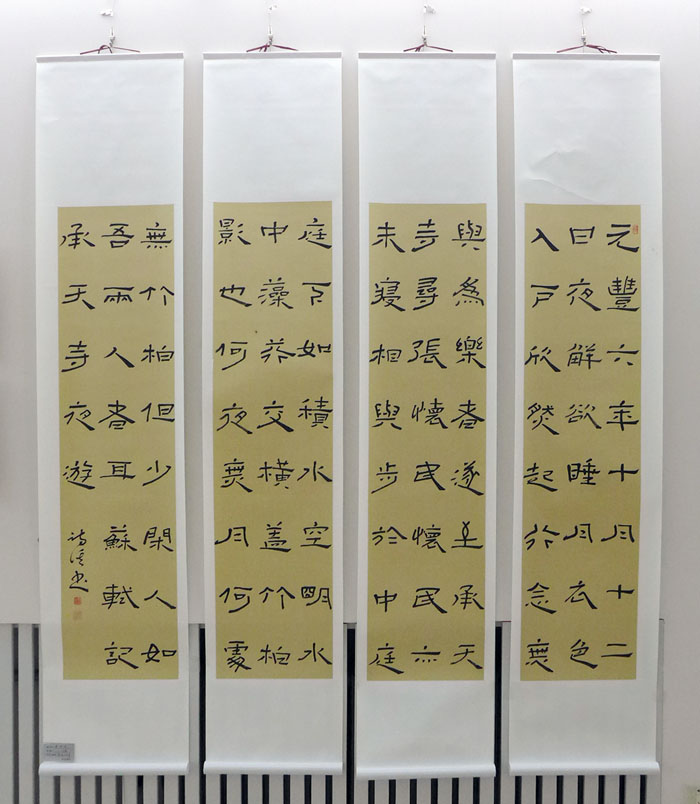 元豐六年十月十二
日夜解欲睡月衣色
入戶欣然起行念無
與為樂者遂至承天
寺尋張懷民懷民亦
未寢相與步於中庭
庭下如積水空明水
中藻荇交橫蓋竹柏
影也何夜無月何處
無竹柏但少閑人如
吾兩人者耳蘇軾記
承天寺夜游